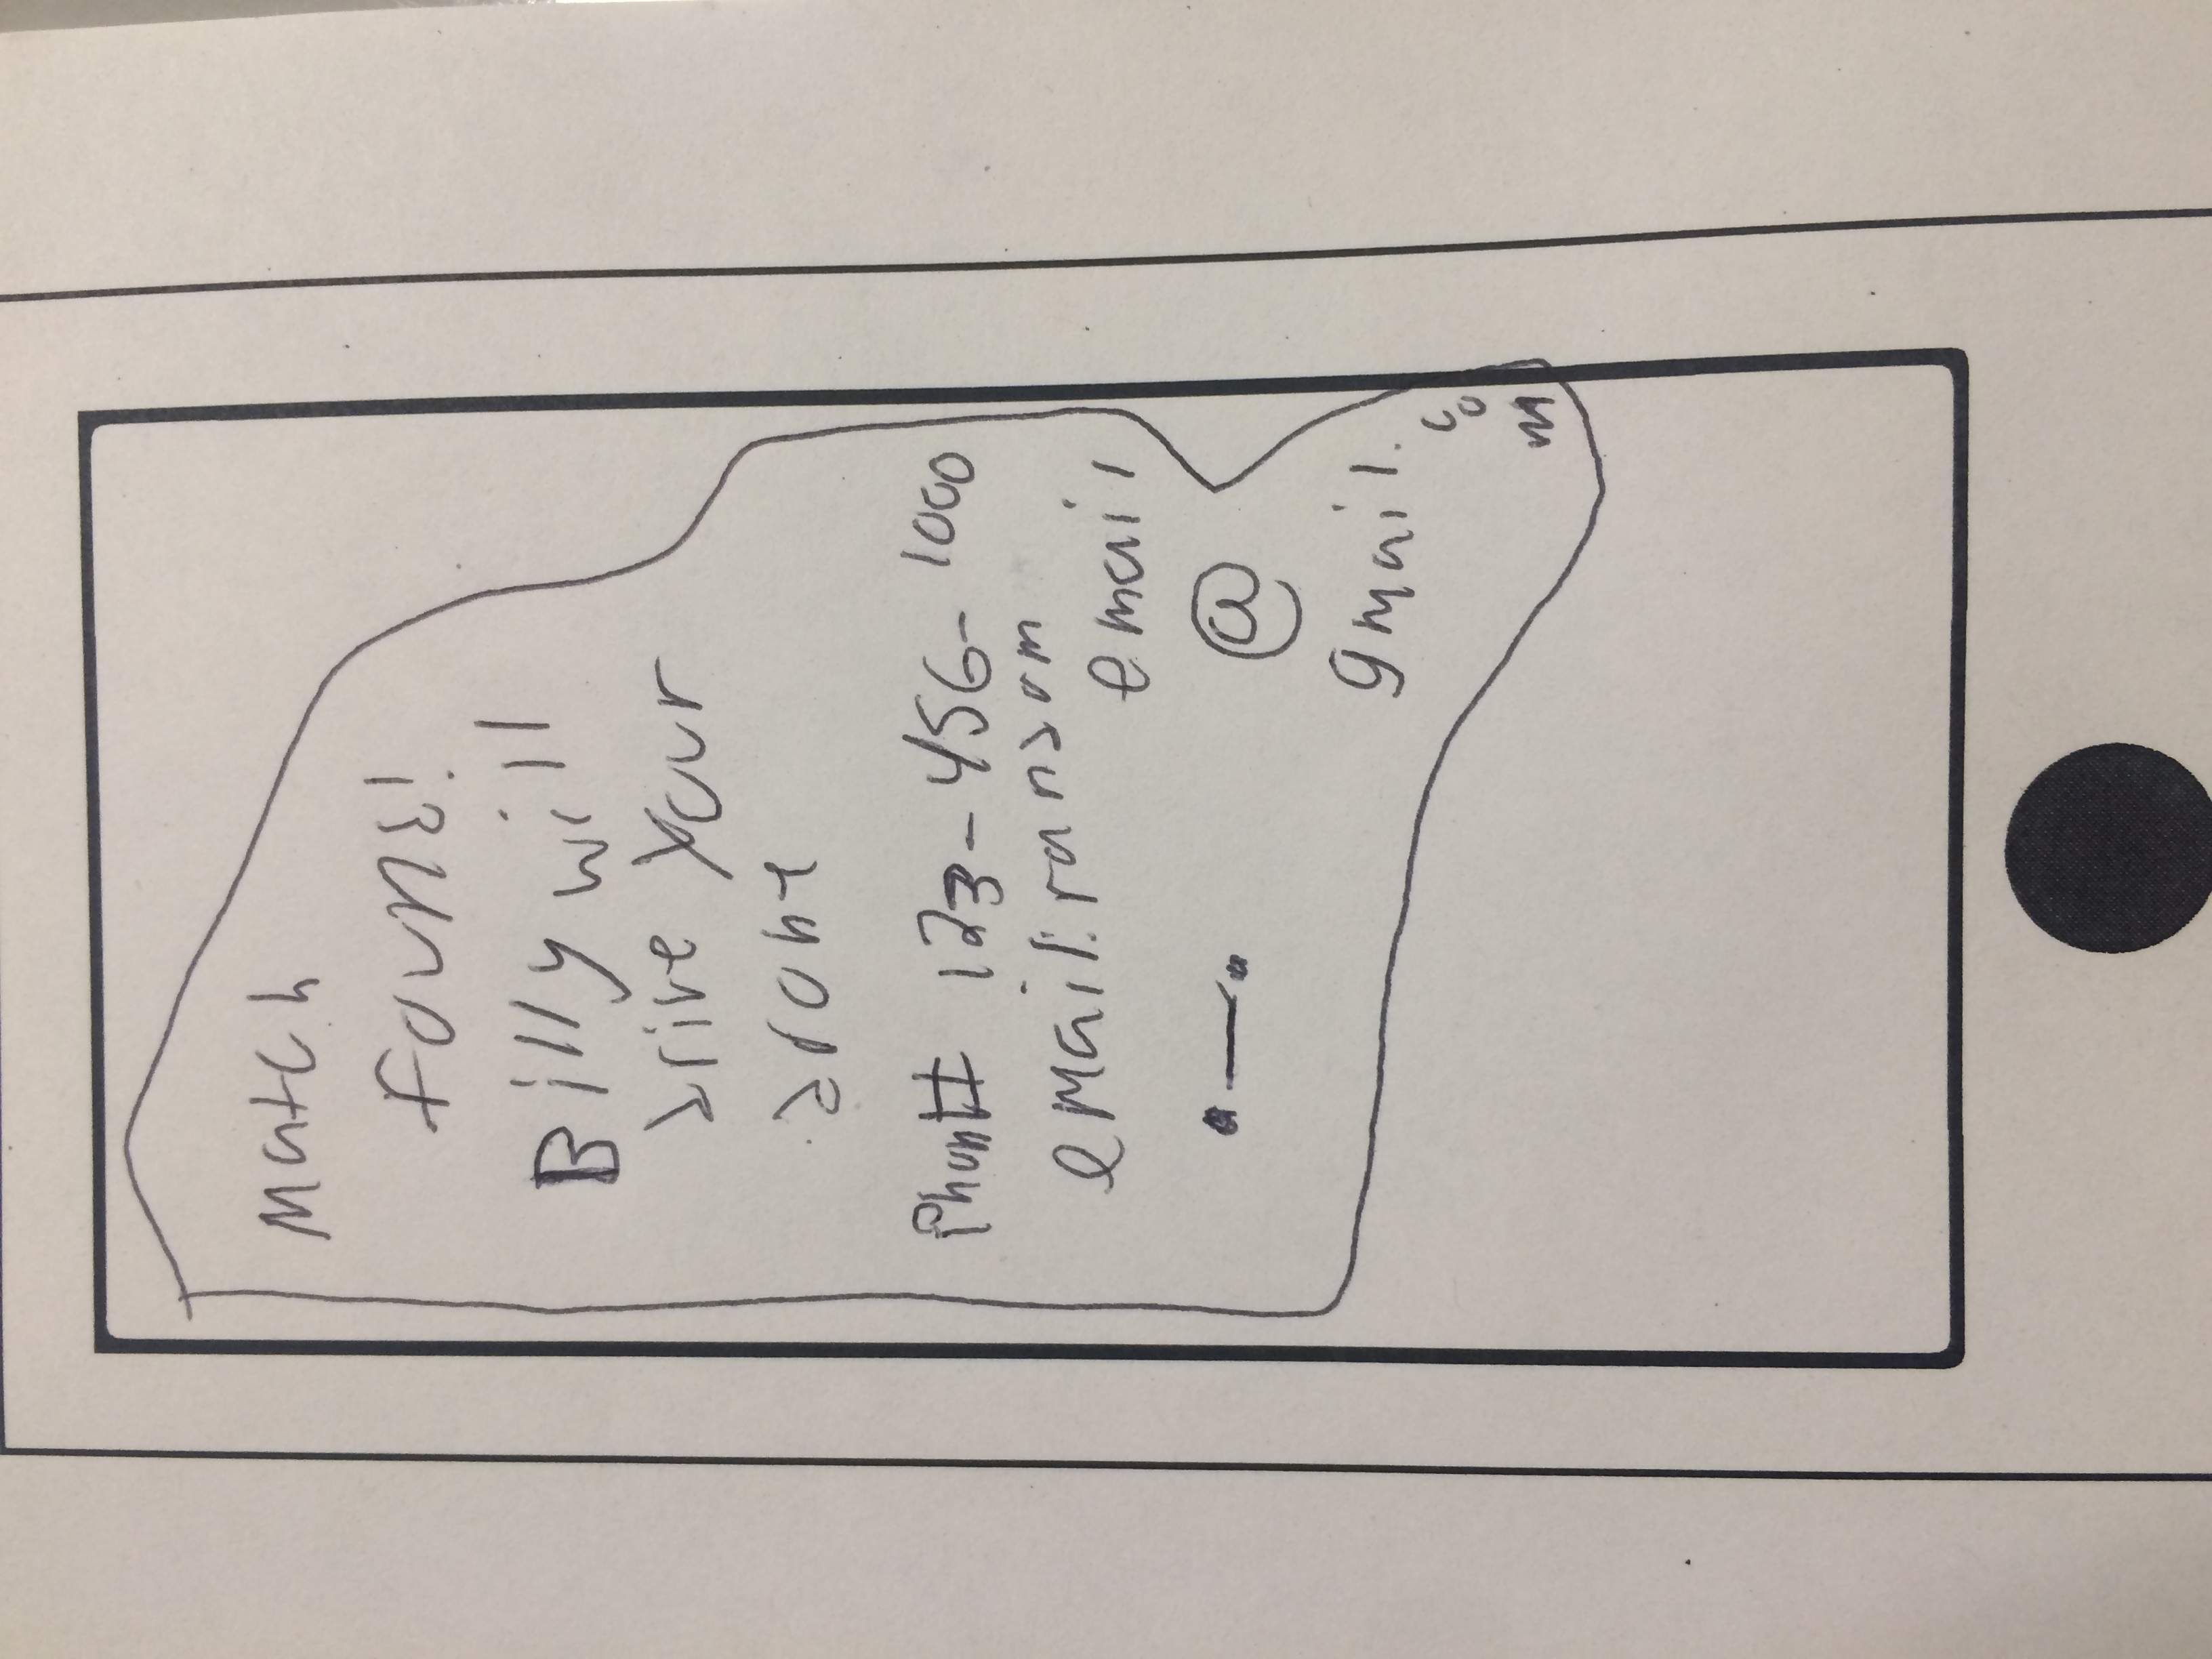 Match
found!
Billy will
slike your
Phone# 123-456-1000
email: ransom
email
@
gmail.
co
m